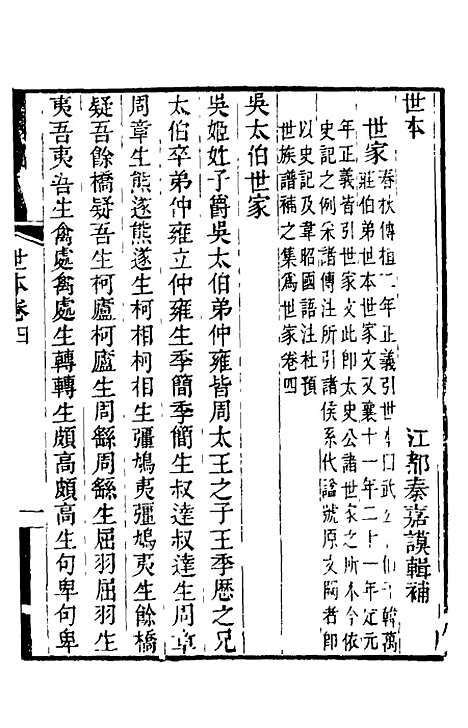 世本
江都秦嘉謨輯補
世家
春秋傳桓二年正義引世本曰武公
莊伯弟世本世家文又襄十一年二十一年定元
年正義皆引世家文此卽太史公諸世家之所本今依
史記之例采諸傳注所引諸侯系代諡號原文闕者卽
以史記及韋昭國語注杜預
世族譜補之集爲世家卷四
吳太伯世家
吳姬姓子爵吳太伯弟仲雍皆周太王之子王季歷之兄
太伯卒弟仲雍立仲雍生季簡季簡生叔達叔達生周章
周章生熊遂熊遂生柯相柯相生彊鳩夷彊鳩夷生餘橋
疑吾餘橋疑吾生柯廬柯廬生周繇周繇生屈羽屈羽生
夷吾夷吾生禽處禽處生轉轉生頗高頗高生句卑句卑
世本卷四
一